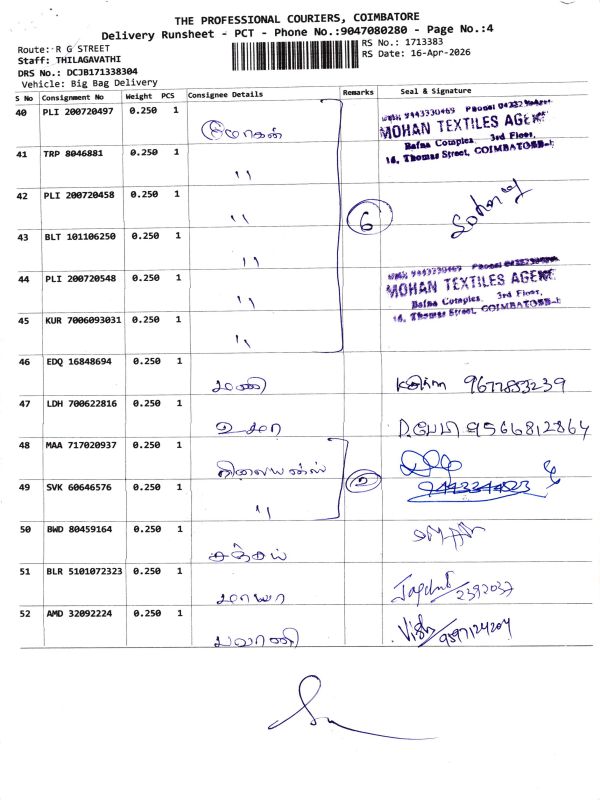 THE PROFESSIONAL COURIERS, COIMBATORE
Delivery Runsheet - PCT - Phone No.:9047080280 - Page No.:4
Route: R G STREET
RS No.: 1713383
Staff: THILAGAVATHI
RS Date: 16-Apr-2026
DRS No.: DCJB171338304
Vehicle: Big Bag Delivery
S No Consignment No Weight PCS Consignee Details Remarks Seal & Signature
40 PLI 200720497 0.250 1 மோகன்
MOHAN TEXTILES AGENC
Bafna Complex, 3rd Floor,
16, Thomas Street, COIMBATORE-1
41 TRP 8046881 0.250 1 11
42 PLI 200720458 0.250 1 11 6
43 BLT 101106250 0.250 1 11
44 PLI 200720548 0.250 1 11
MOHAN TEXTILES AGENC
Bafna Complex, 3rd Floor,
16, Thomas Street, COIMBATORE-1
45 KUR 7006093031 0.250 1 11
46 EDQ 16848694 0.250 1 மணி 9677853239
47 LDH 700622816 0.250 1 உமா 9566812864
48 MAA 717020937 0.250 1 ரிலையன்ஸ் 2
49 SVK 60646576 0.250 1 11
50 BWD 80459164 0.250 1 சஞ்சய்
51 BLR 5101072323 0.250 1 மாயா 2392037
52 AMD 32092224 0.250 1 பவானி Vish/9597124204